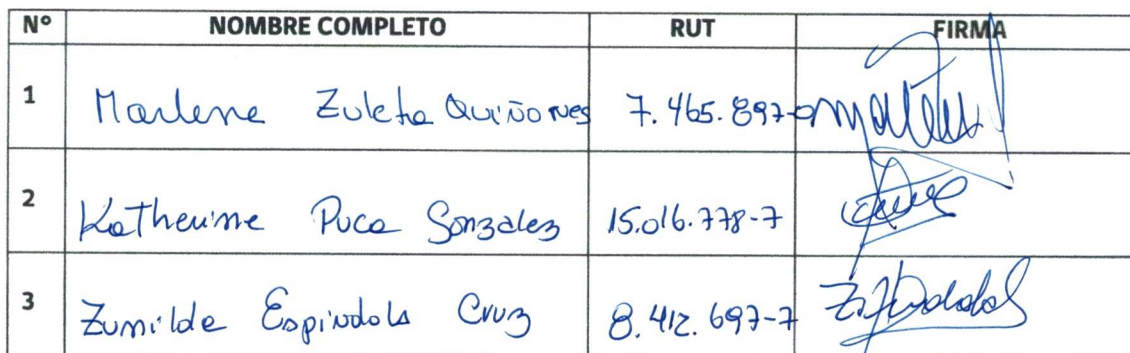 N° NOMBRE COMPLETO RUT FIRMA
1 Marlene Zuleta Quiñones 7.465.897-0
2 Katherine Puca Gonzalez 15.016.778-7
3 Zunilde Espindola Cruz 8.412.697-7